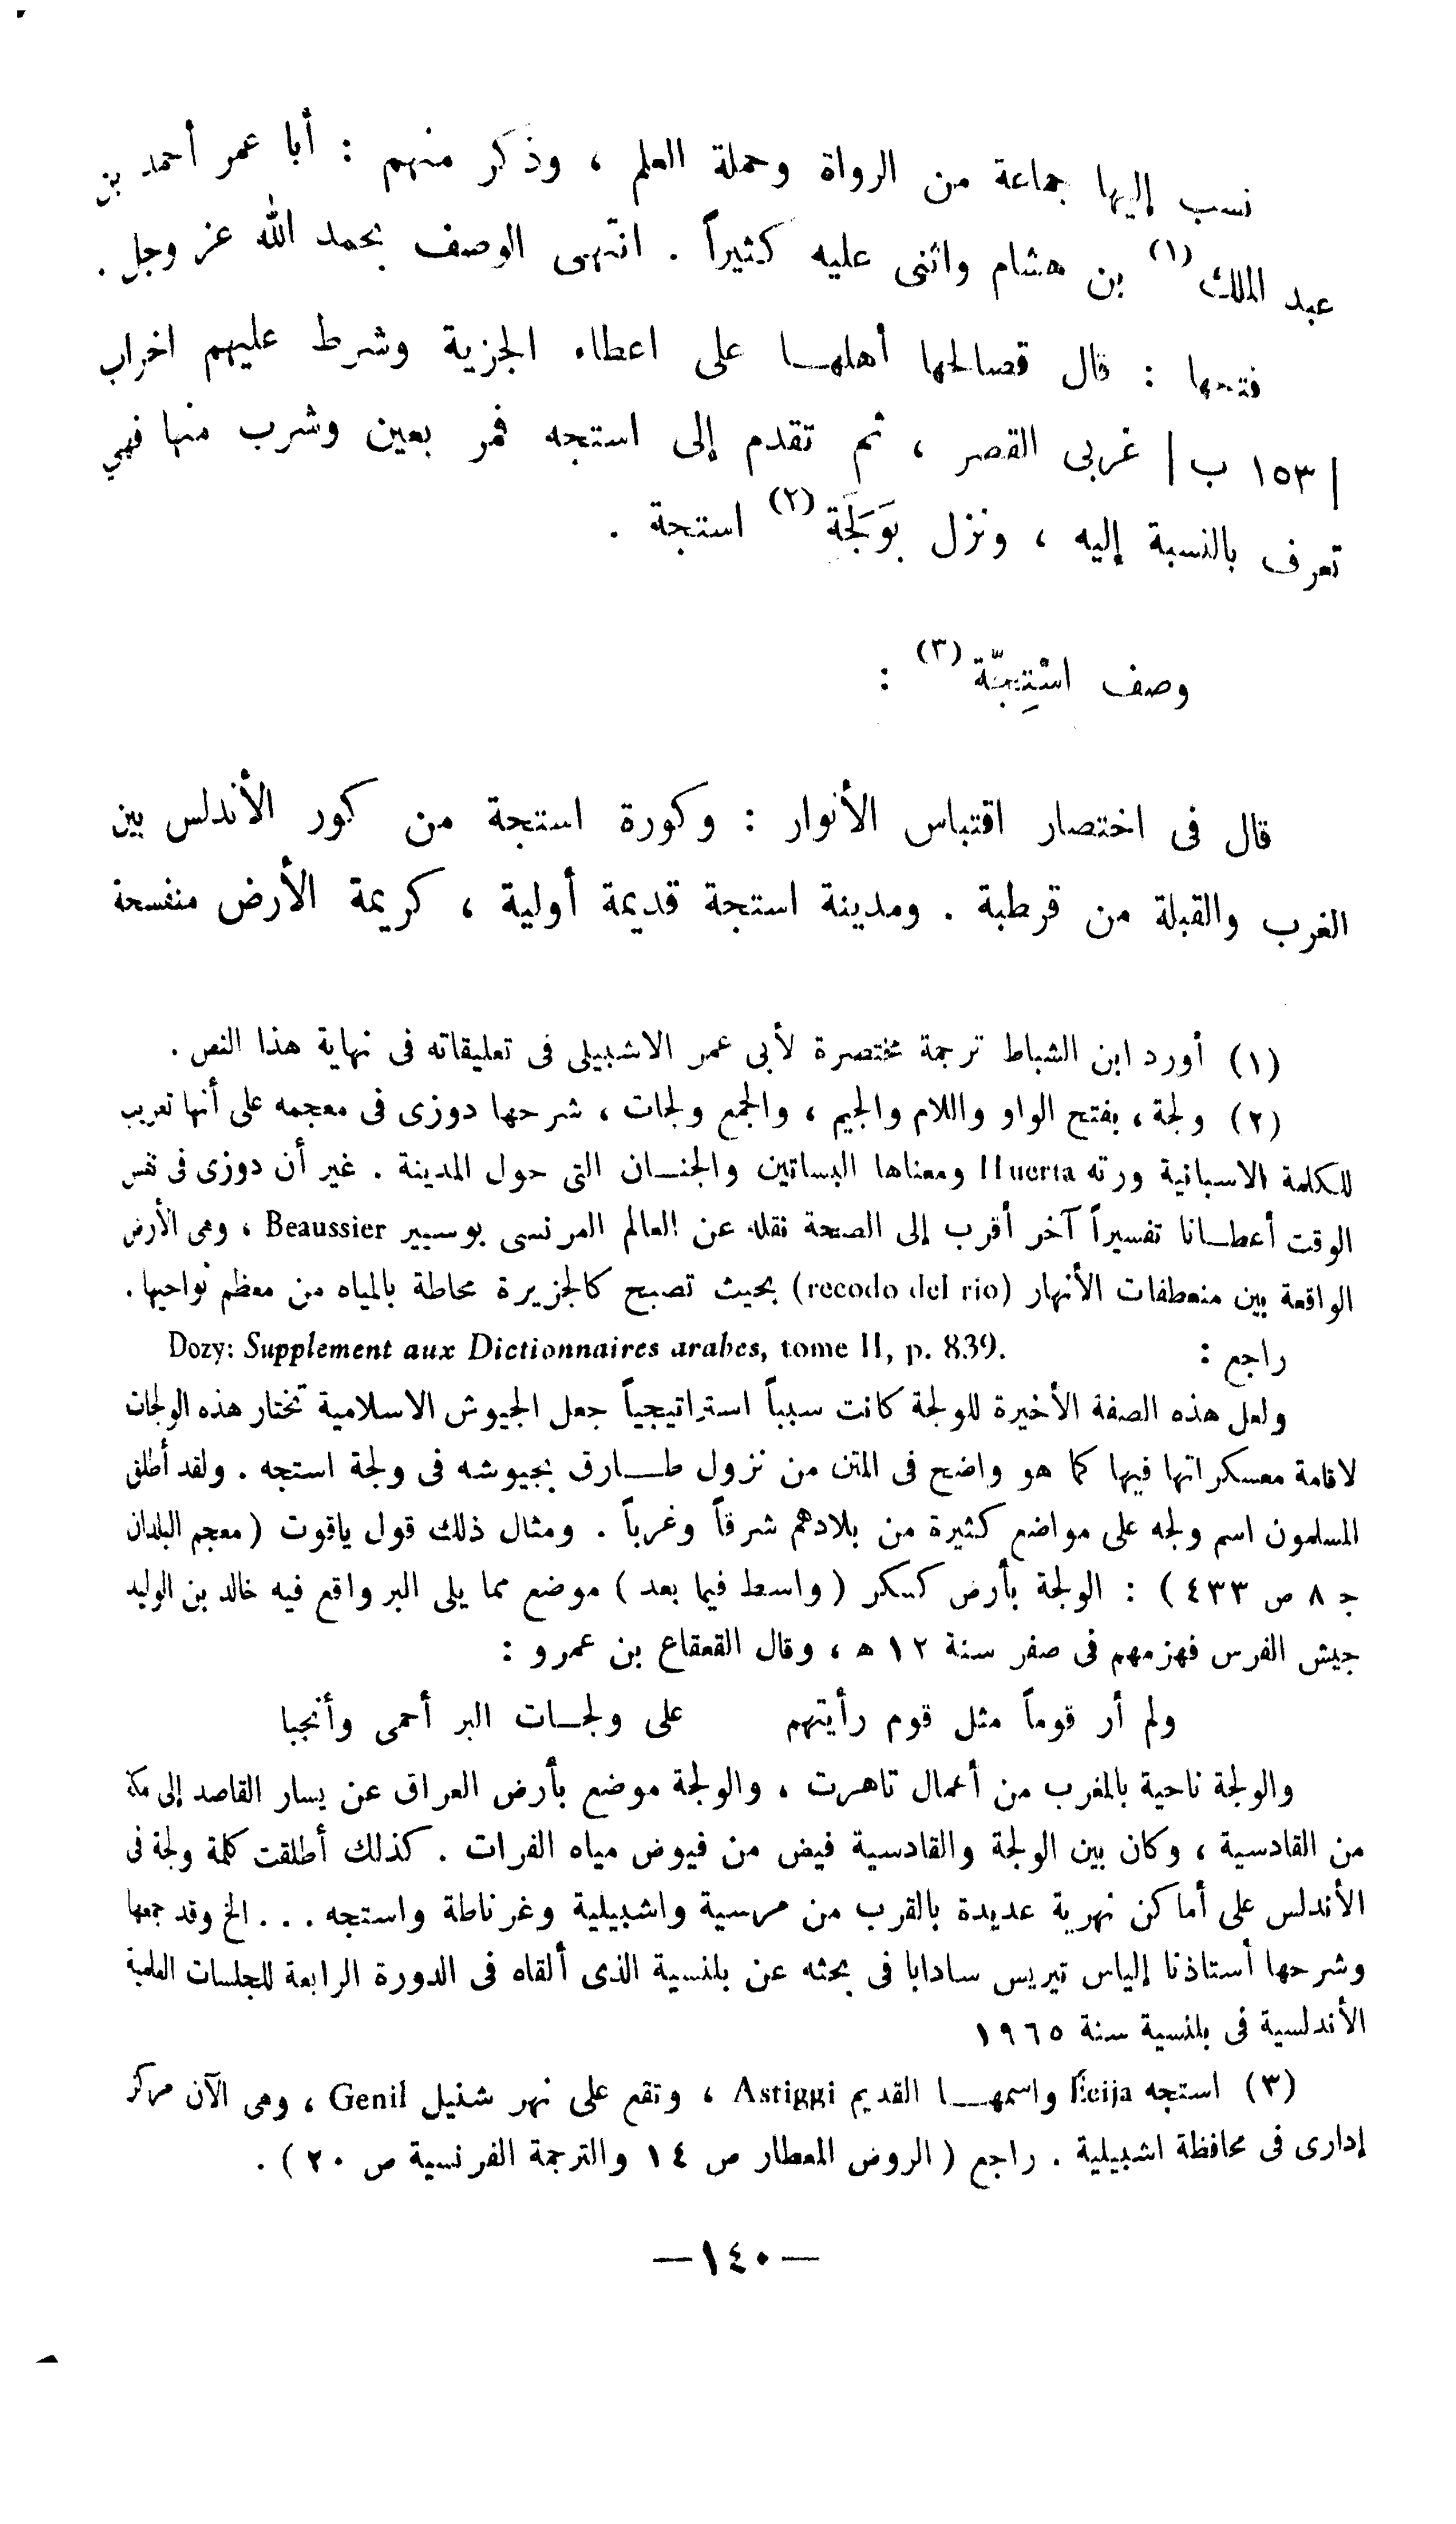 نسب إليها جماعة من الرواة وحملة العلم ، وذكر منهم : أبا عمر أحمد بن
عبد الملك (١) بن هشام واثنى عليه كثيراً . انتهى الوصف بحمد الله عز وجل .
فتحها : قال فصالحها أهلها على اعطاء الجزية وشرط عليهم اخراب
| ١٥٣ ب | غربى القصر ، ثم تقدم إلى استجه فمر بعين وشرب منها فهي
تعرف بالنسبة إليه ، ونزل بوَلَجَة (٢) استجة .
وصف اسْتِجّة (٣) :
قال فى اختصار اقتباس الأنوار : وكورة استجة من كور الأندلس بين
الغرب والقبلة من قرطبة . ومدينة استجة قديمة أولية ، كريمة الأرض منفسحة
(١) أورد ابن الشباط ترجمة مختصرة لأبى عمر الاشبيلى فى تعليقاته فى نهاية هذا النص .
(٢) ولجة ، بفتح الواو واللام والجيم ، والجمع ولجات ، شرحها دوزى فى معجمه على أنها تعريب
للكلمة الاسبانية ورته Huerta ومعناها البساتين والجنان التى حول المدينة . غير أن دوزى فى نفس
الوقت أعطانا تفسيراً آخر أقرب إلى الصحة نقله عن العالم الفرنسى بوسيير Beaussier ، وهى الأرض
الواقعة بين منعطفات الأنهار (recodo del rio) بحيث تصبح كالجزيرة محاطة بالمياه من معظم نواحيها .
راجع : Dozy: Supplement aux Dictionnaires arabes, tome II, p. 839.
ولعل هذه الصفة الأخيرة للولجة كانت سبباً استراتيجياً جعل الجيوش الاسلامية تختار هذه الولجات
لاقامة معسكراتها فيها كما هو واضح فى المتن من نزول طارق بجيوشه فى ولجة استجه . ولقد أطلق
المسلمون اسم ولجه على مواضع كثيرة من بلادهم شرقاً وغرباً . ومثال ذلك قول ياقوت ( معجم البلدان
ج ٨ ص ٤٣٣ ) : الولجة بأرض كسكر ( واسط فيما بعد ) موضع مما يلى البر واقع فيه خالد بن الوليد
جيش الفرس فهزمهم فى صفر سنة ١٢ ه ، وقال القعقاع بن عمرو :
ولم أر قوماً مثل قوم رأيتهم على ولجات البر أحمى وأنجبا
والولجة ناحية بالمغرب من أعمال تاهرت ، والولجة موضع بأرض العراق عن يسار القاصد إلى مكة
من القادسية ، وكان بين الولجة والقادسية فيض من فيوض مياه الفرات . كذلك أطلقت كلمة ولجة فى
الأندلس على أماكن نهرية عديدة بالقرب من مرسية واشبيلية وغرناطة واستجه ... الخ وقد جمعها
وشرحها أستاذنا إلياس تيريس سادابا فى بحثه عن بلنسية الذى ألقاه فى الدورة الرابعة للجلسات العلمية
الأندلسية فى بلنسية سنة ١٩٦٥
(٣) استجه Ecija واسمها القديم Astiggi ، وتقع على نهر شنيل Genil ، وهى الآن مركز
إدارى فى محافظة اشبيلية . راجع ( الروض المعطار ص ١٤ والترجمة الفرنسية ص ٢٠ ) .
— ١٤٠ —